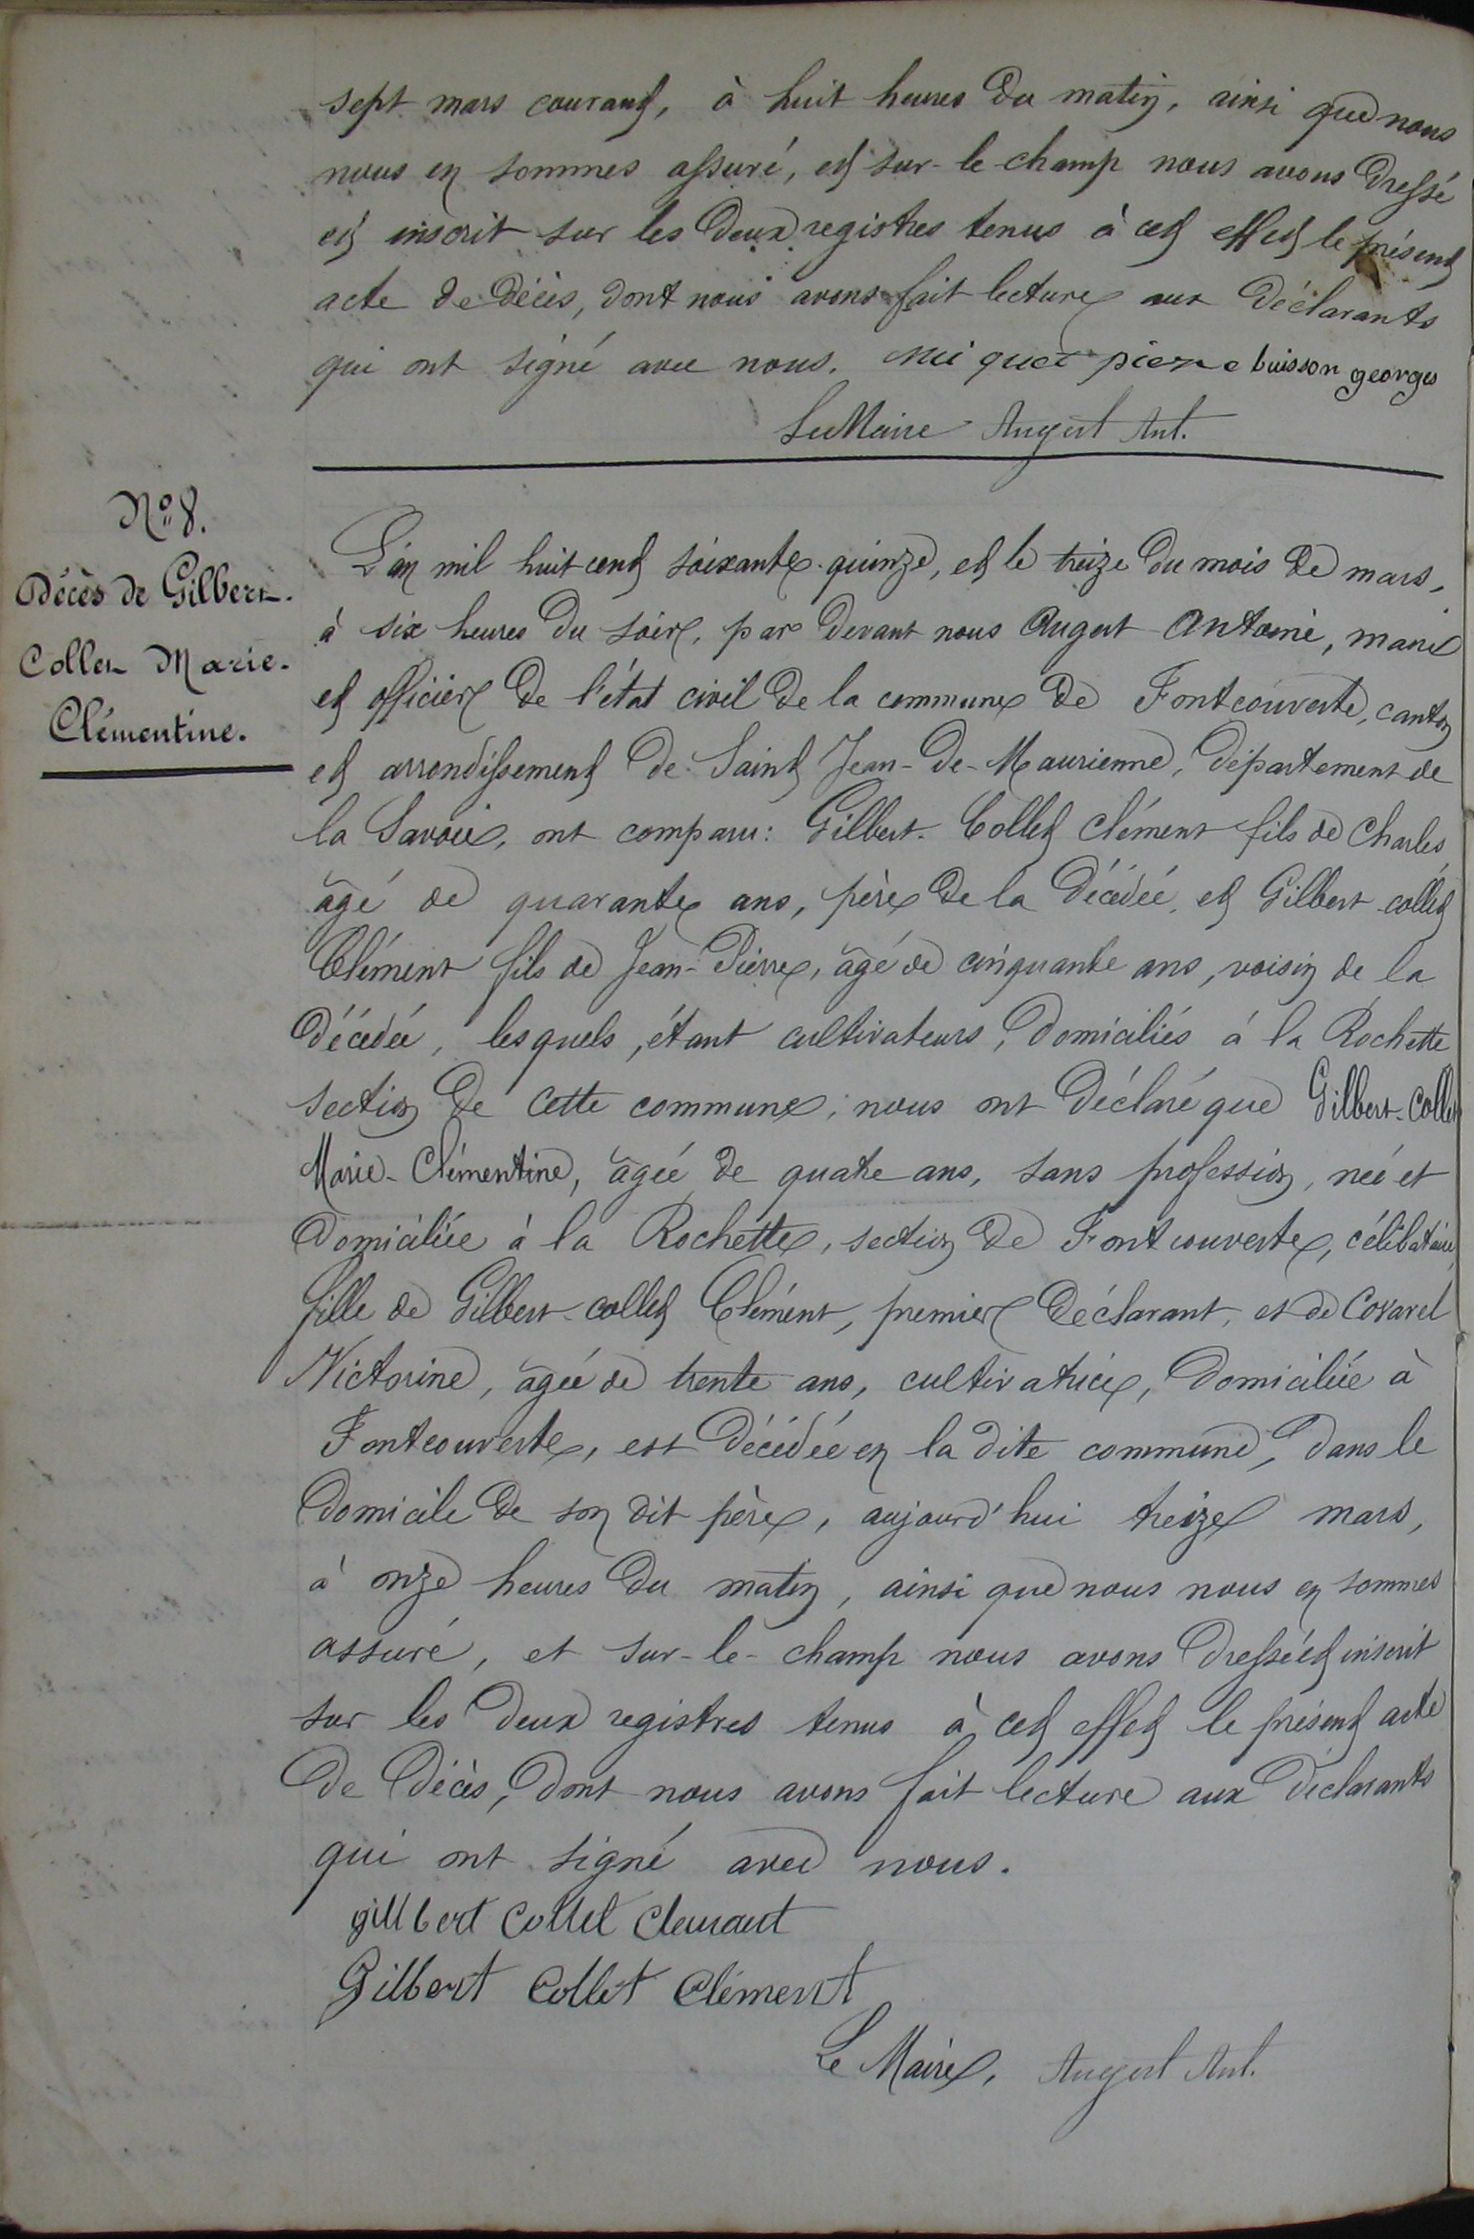 sept mars courant, à huit heures du matin, ainsi que nous
nous en sommes assuré, et sur-le-champ nous avons dressé
et inscrit sur les deux registres tenus à cet effet le présent
acte de décès, dont nous avons fait lecture aux déclarants
qui ont signé avec nous. Miquet pierre buisson georges
Le Maire Augert Ant.
N° 8.
Décès de Gilbert-
Collet Marie-
Clémentine.
L'an mil huit cent soixante-quinze, et le treize du mois de mars,
à six heures du soir, par devant nous Augert Antoine, maire
et officier de l'état civil de la commune de Fontcouverte, canton
et arrondissement de Saint Jean-de-Maurienne, département de
la Savoie, ont comparu: Gilbert-Collet Clément fils de Charles,
âgé de quarante ans, père de la décédée, et Gilbert-collet
Clément fils de Jean-Pierre, âgé de cinquante ans, voisin de la
décédée, lesquels, étant cultivateurs, domiciliés à la Rochette
section de cette commune, nous ont déclaré que Gilbert-Collet
Marie-Clémentine, âgée de quatre ans, sans profession, née et
domiciliée à la Rochette, section de Fontcouverte, célibataire,
fille de Gilbert-collet Clément, premier déclarant, et de Covarel
Victorine, âgée de trente ans, cultivatrice, domiciliée à
Fontcouverte, est décédée en la dite commune, dans le
domicile de son dit père, aujourd'hui treize mars,
à onze heures du matin, ainsi que nous nous en sommes
assuré, et sur-le-champ nous avons dressé et inscrit
sur les deux registres tenus à cet effet le présent acte
de décès, dont nous avons fait lecture aux déclarants
qui ont signé avec nous.
gillbert Collet Clemant
Gilbert Collet Clément
Le Maire, Augert Ant.